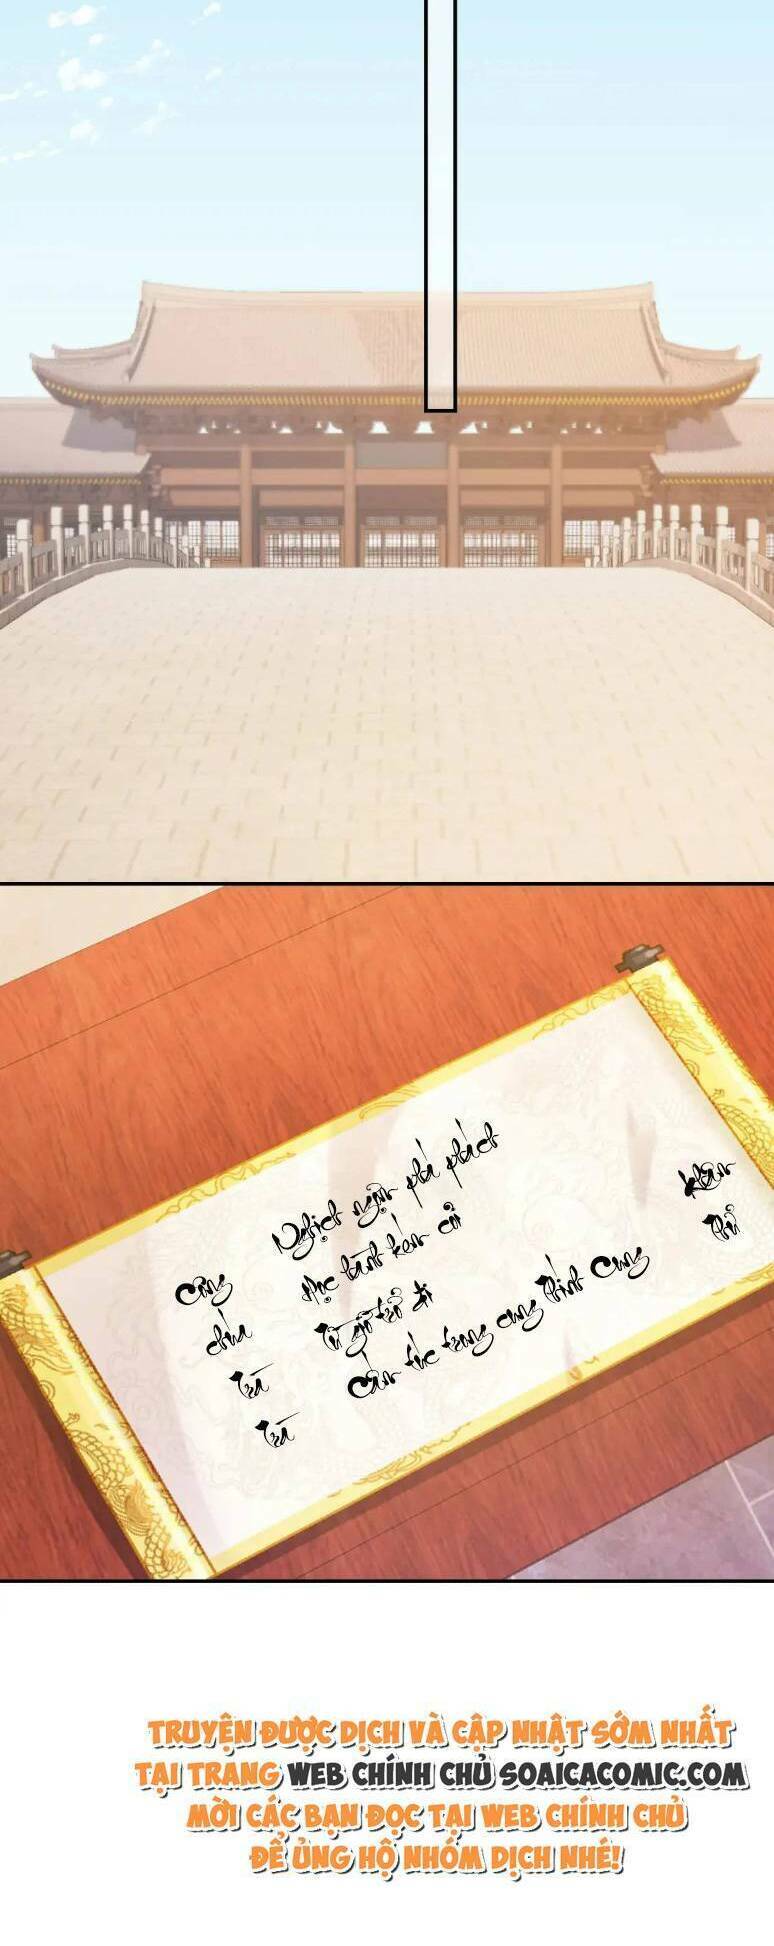 Nghịch ngợm phá phách
Học hành kém cỏi
Từ giờ trở đi
Cấm túc trong cung Thính Cung
Công
chúa
Trà
Trà
khâm
thử
TRUYỆN ĐƯỢC DỊCH VÀ CẬP NHẬT SỚM NHẤT
TẠI TRANG WEB CHÍNH CHỦ SOAICACOMIC.COM
MỜI CÁC BẠN ĐỌC TẠI WEB CHÍNH CHỦ
ĐỂ ỦNG HỘ NHÓM DỊCH NHÉ!